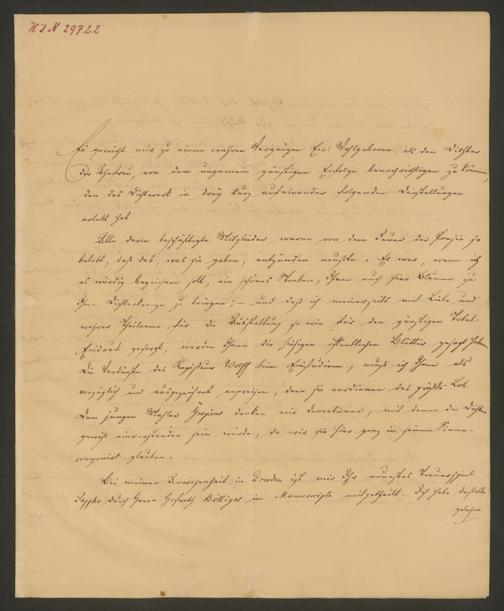 HIN 29722
Es gereicht mir zu einem wahren Vergnügen Euer Wohlgeboren, als den Dichter
der Ahnfrau, von dem ungemein günstigen Erfolge benachrichtigen zu können,
den das Dichterwerk in drey kurz auf einander folgenden Darstellungen
erlebt hat.
Alle darin beschäftigte Mitglieder waren von dem Feuer der Poesie so
belebt, daß das, was sie gaben, entzünden mußte. Es war, wenn ich
es würdig bezeichnen soll, ein schönes Streben, Ihnen auch hier Blumen zu
Ihrem Dichterkranze zu bringen; – und daß ich meinerseits mit Liebe und
wahrer Theilnahme für die Ausstattung so wie für den günstigen Total-
Eindruck gesorgt, werden Ihnen die hiesigen öffentlichen Blätter gesagt haben.
Die Verdienste des Regisseur Wolff beim Einstudieren, muß ich Ihnen als
vorzüglich und ausgezeichnet anpreisen, denn sie verdienen das größte Lob.
Dem jungen Maler Gropius danken wir Decorationen, mit denen der Dichter
gewiß einverstanden sein würde, da wir sie hier ganz in seinem Sinne
glauben.
Bei meiner Anwesenheit in Dresden ist mir Ihr neuestes Trauerspiel
Sappho durch Herrn Hofrath Böttiger im Manuscripte mitgetheilt. Ich habe dasselbe
gelesen